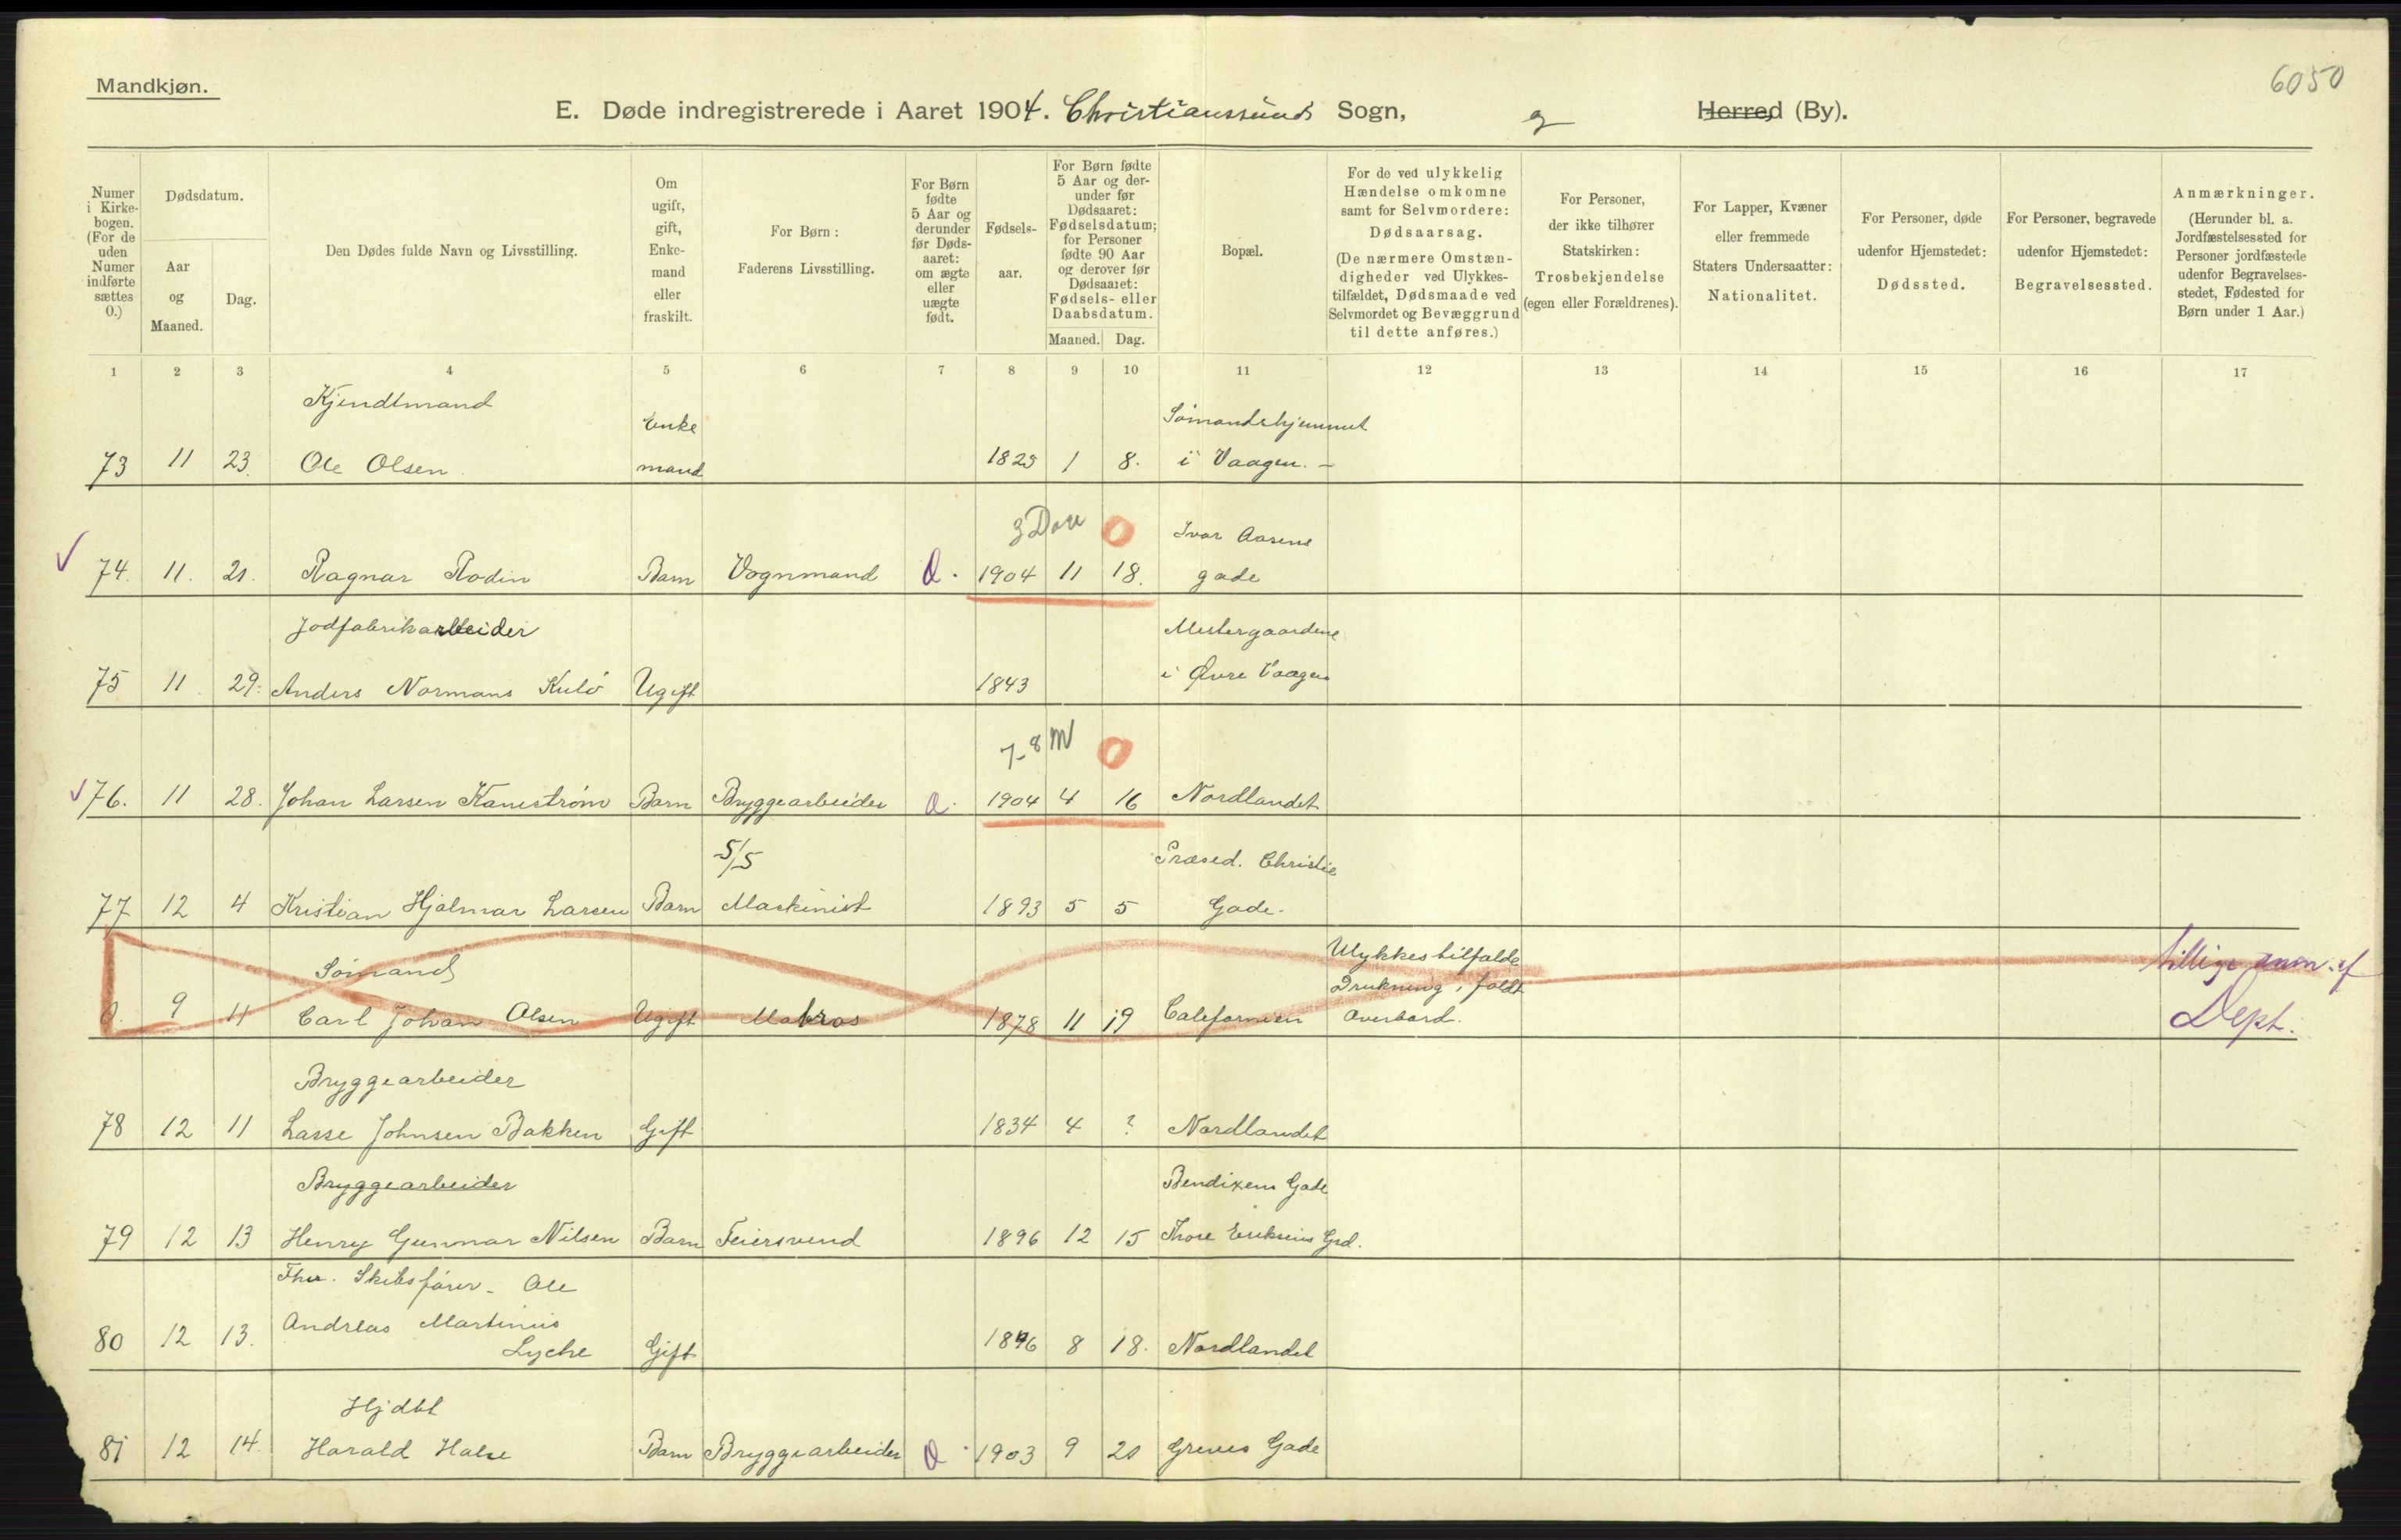 Mandkjøn.
6050
E. Døde indregistrerede i Aaret 1904. Christianssunds Sogn, Herred (By).
Numer i Kirke-bogen. (For de uden Numer indførte sættes 0.)
Dødsdatum.
Aar og Maaned.
Dag.
Den Dødes fulde Navn og Livsstilling.
Om ugift, gift, Enke-mand eller fraskilt.
For Børn: Faderens Livsstilling.
For Børn fødte 5 Aar og derunder før Døds-aaret: om ægte eller uægte født.
Fødsels-aar.
For Børn fødte 5 Aar og der-under før Dødsaaret: Fødselsdatum; for Personer fødte 90 Aar og derover før Dødsaaret: Fødsels- eller Daabsdatum.
Maaned. Dag.
Bopæl.
For de ved ulykkelig Hændelse omkomne samt for Selvmordere: Dødsaarsag. (De nærmere Omstæn-digheder ved Ulykkes-tilfældet, Dødsmaade ved Selvmordet og Bevæggrund til dette anføres.)
For Personer, der ikke tilhører Statskirken: Trosbekjendelse (egen eller Forældrenes).
For Lapper, Kvæner eller fremmede Staters Undersaatter: Nationalitet.
For Personer, døde udenfor Hjemstedet: Dødssted.
For Personer, begravede udenfor Hjemstedet: Begravelsessted.
Anmærkninger. (Herunder bl. a. Jordfæstelsessted for Personer jordfæstede udenfor Begravelses-stedet, Fødested for Børn under 1 Aar.)
1 2 3 4 5 6 7 8 9 10 11 12 13 14 15 16 17
Kjendtmand Enke Sømandshjemmet
73 11 23. Ole Olsen mand 1825 1 8. i Vaagen. -
3 Dage 0 Ivar Aasens
74. 11. 21. Ragnar Rodin Barn Vognmand 1904 11 18. gade
Jodfabrikarbeider Mestergaardene
75 11. 29. Anders Normans Kulö Ugift 1843 i Øvre Vaagen
7-8 M 0
76. 11 28. Johan Larsen Kanestrøm Barn Bryggearbeider 1904 4 16 Nordlandet
S/S Præsed. Christie
77 12 4 Kristian Hjalmar Larsen Barn Maskinist 1893 5 5 Gade.
Sømand Ulykkestilfælde tillige anm. af
Drukning, faldt
0. 9 11 Carl Johan Olsen Ugift Matros 1878 11 19 Californien Overbord. Dept.
Bryggearbeider
78 12 11 Lasse Johnsen Bakken Gift 1834 4 ? Nordlandet
Bryggearbeider Bendixens Gade
79 12 13 Henry Gunnar Nilsen Barn Feiersvend 1896 12 15 Thore Eriksens Grd.
Fhv. Skibsfører - Ole
Andreas Martinius
80 12 13. Lyche Gift 1846 8 18. Nordlandet
Hjdbt
81 12 14. Harald Halse Barn Bryggearbeider 1903 9 20 Greves Gade